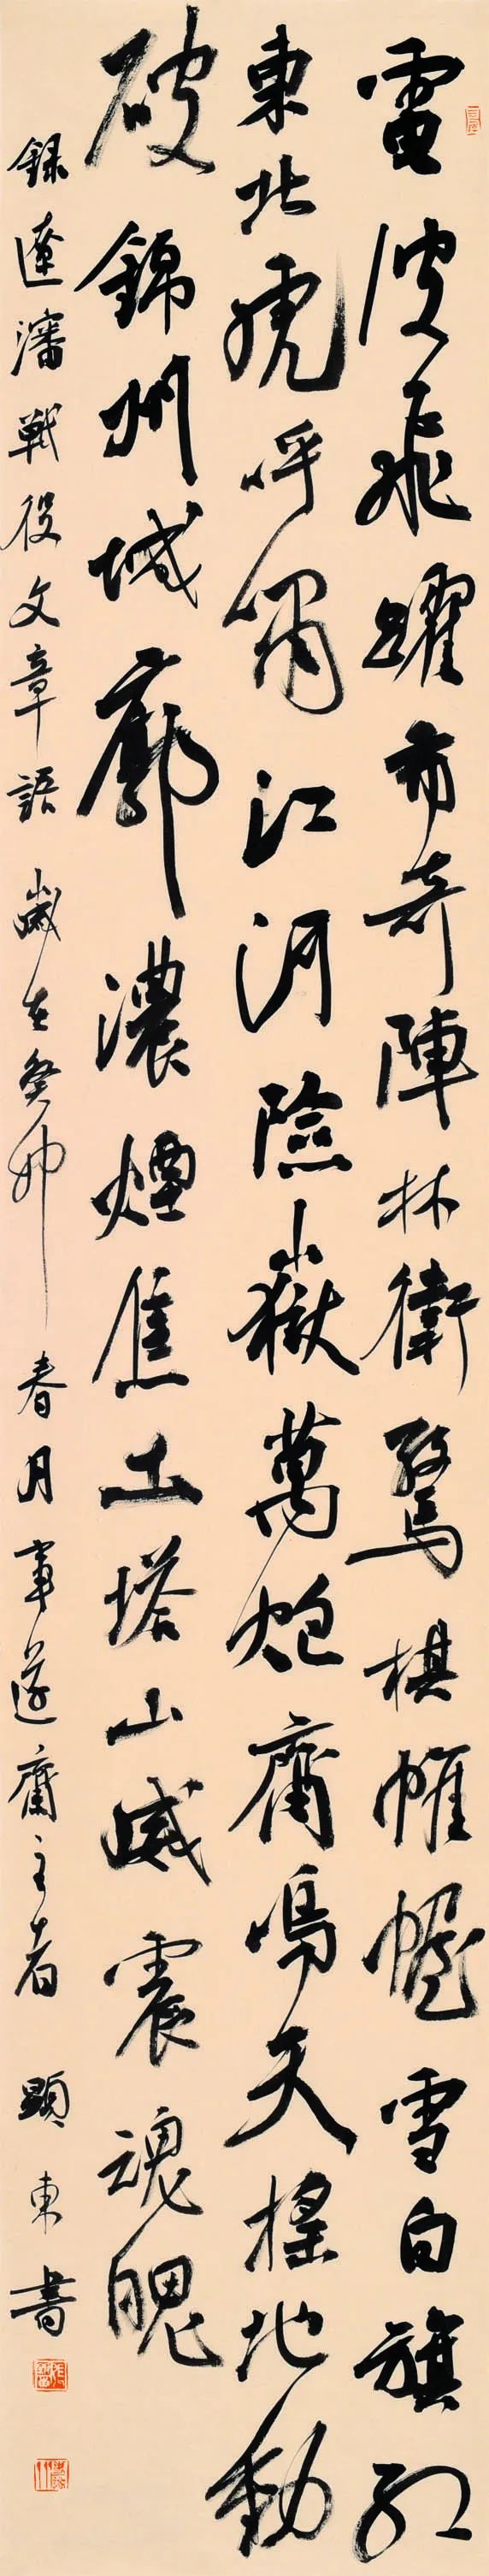 電波飛躍布奇陣林衛驚棋帷幄雪白旗紅
東北虎呼嘯江河險山嶽萬炮齊鳴天搖地動
破錦州城廓濃煙焦土塔山威震魂魄
録遼瀋戰役文章語歲在癸卯春月事遂齋主者顯東書